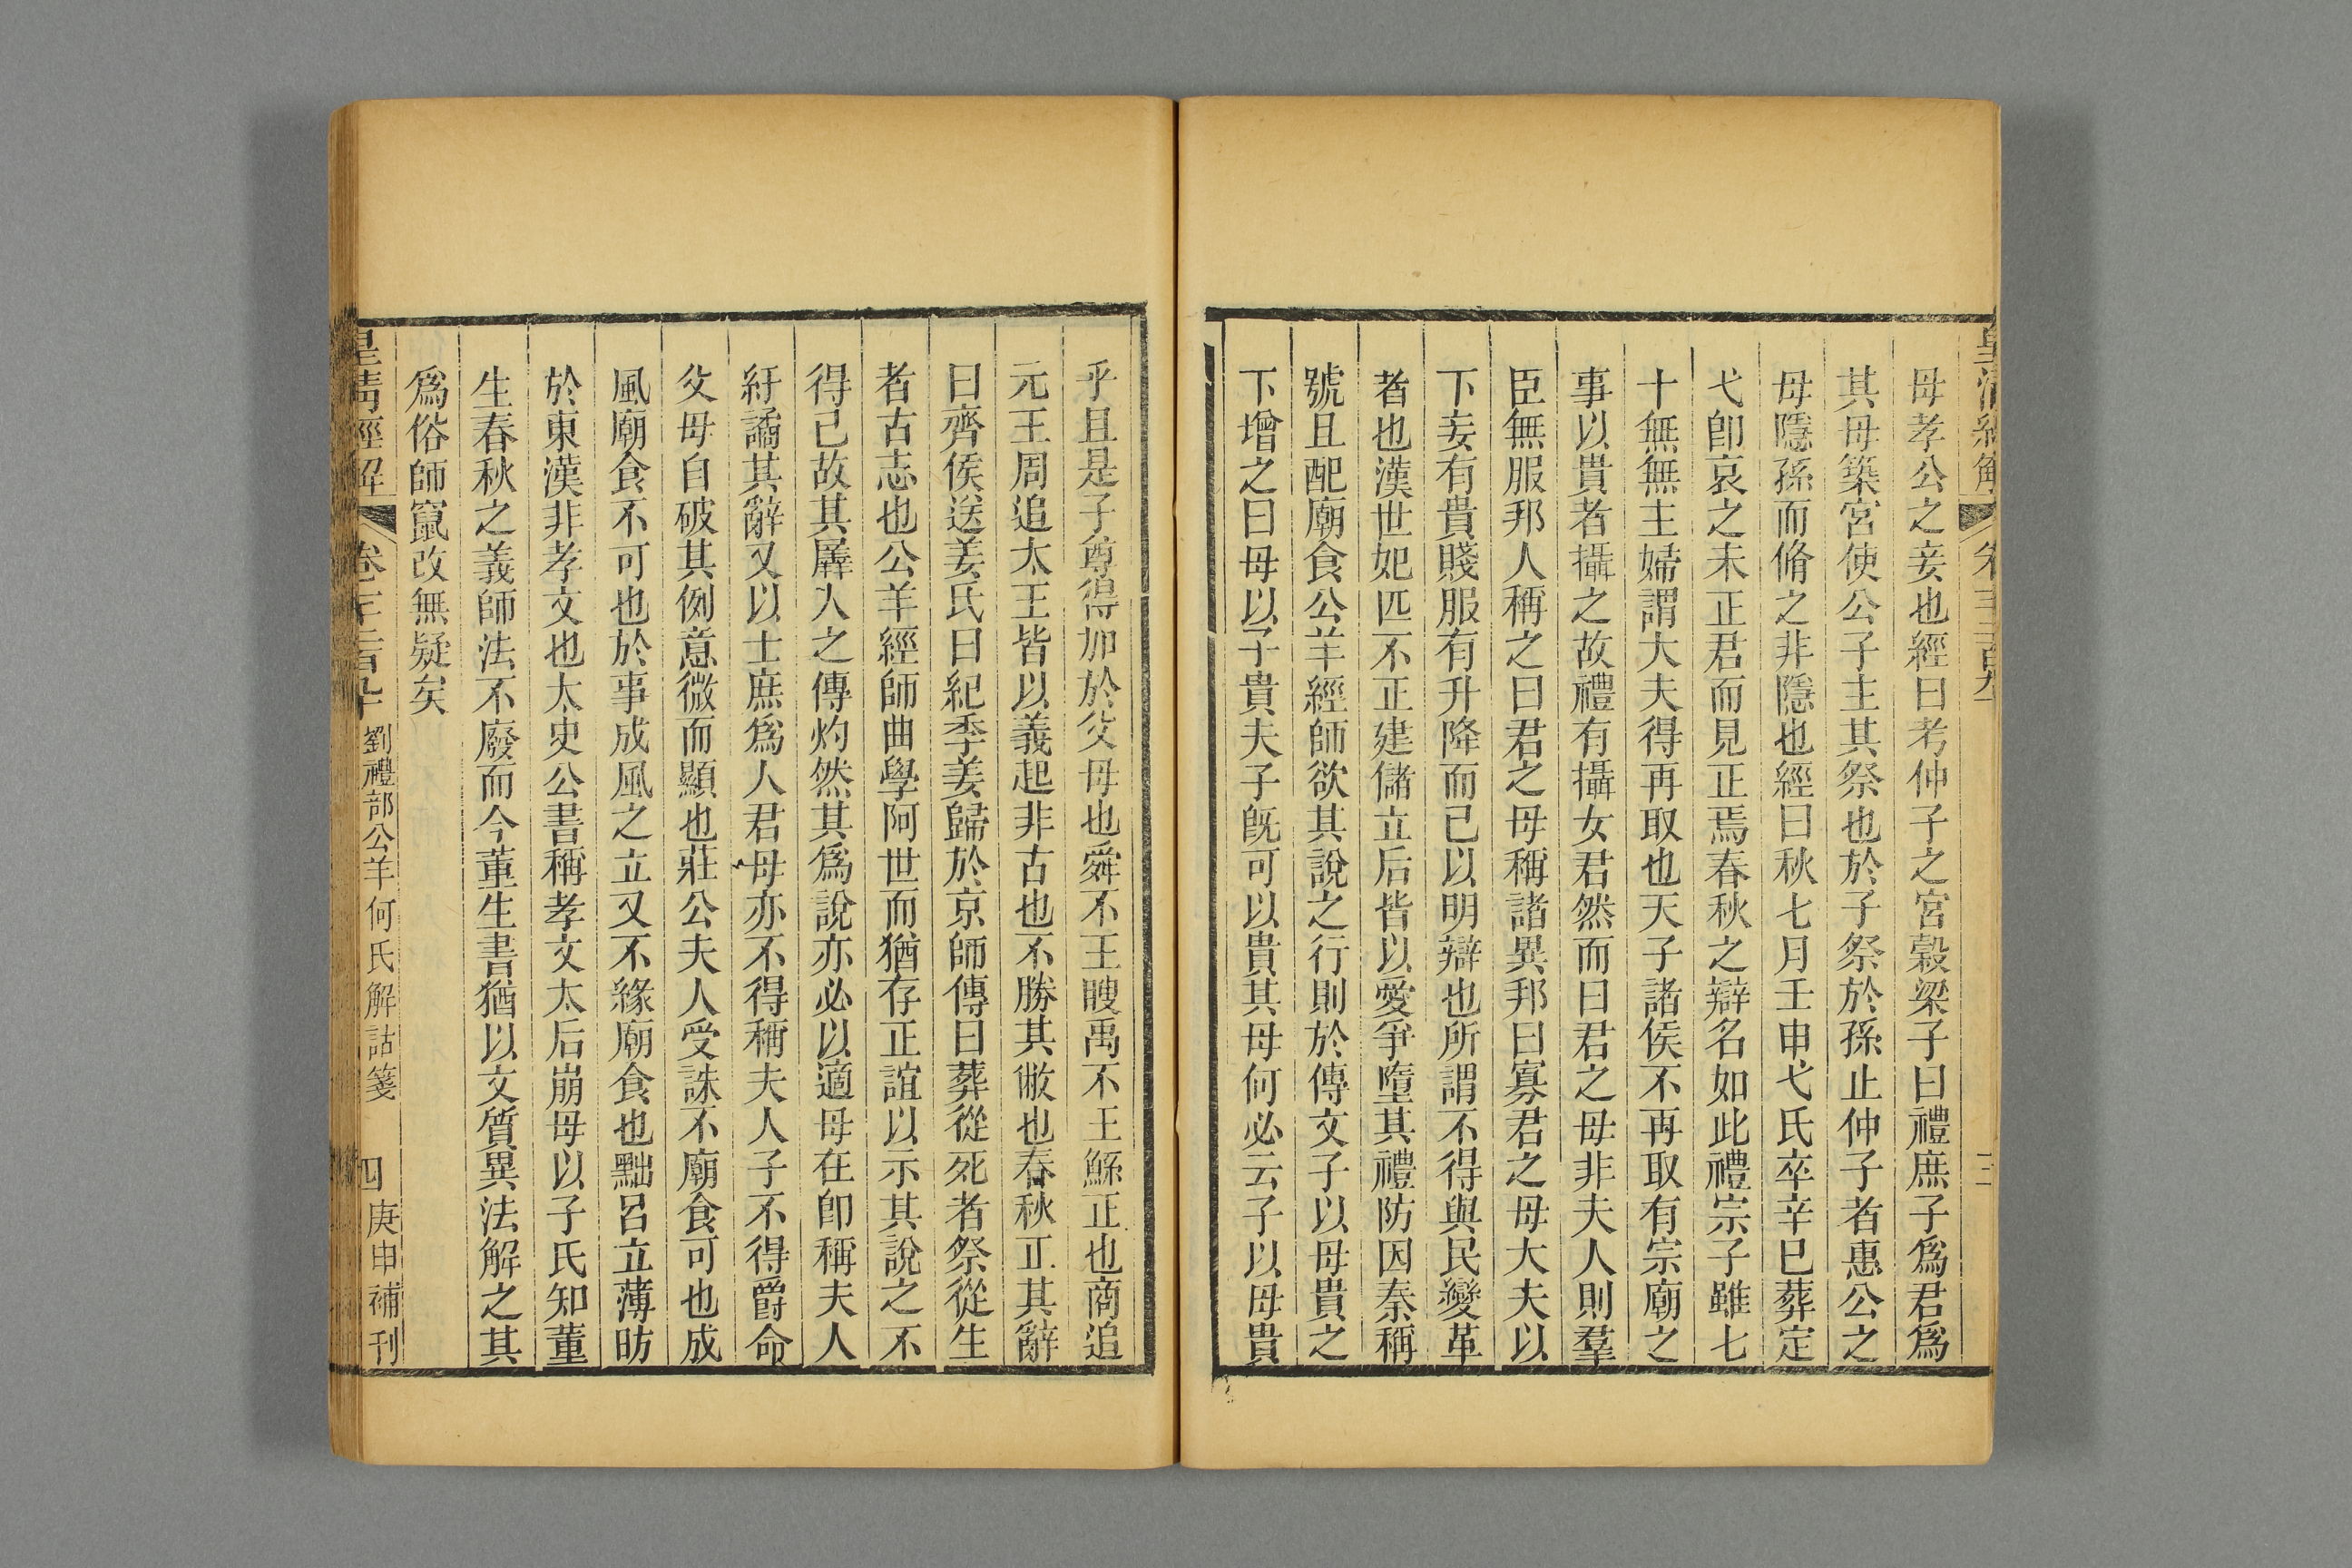 母孝公之妾也經曰考仲子之宮穀梁子曰禮庶子爲君爲
其母築宮使公子主其祭也於子祭於孫止仲子者惠公之
母隱孫而脩之非隱也經曰秋七月壬申弋氏卒辛巳葬定
弋卽哀之未正君而見正焉春秋之辯名如此禮宗子雖七
十無無主婦謂大夫得再取也天子諸侯不再取有宗廟之
事以貴者攝之故禮有攝女君然而曰君之母非夫人則羣
臣無服邦人稱之曰君之母稱諸異邦曰寡君之母大夫以
下妾有貴賤服有升降而已以明辯也所謂不得與民變革
者也漢世妃匹不正建儲立后皆以愛爭墮其禮防因秦稱
號且配廟食公羊經師欲其說之行則於傳文子以母貴之
下增之曰母以子貴夫子旣可以貴其母何必云子以母貴
乎且是子尊得加於父母也舜不王瞍禹不王鯀正也商追
元王周追太王皆以義起非古也不勝其敝也春秋正其辭
曰齊侯送姜氏曰紀季姜歸於京師傳曰葬從死者祭從生
者古志也公羊經師曲學阿世而猶存正誼以示其說之不
得已故其羼入之傳灼然其爲說亦必以適母在卽稱夫人
紆譎其辭又以士庶爲人君母亦不得稱夫人子不得爵命
父母自破其例意微而顯也莊公夫人受誅不廟食可也成
風廟食不可也於事成風之立又不緣廟食也黜呂立薄昉
於東漢非孝文也太史公書稱孝文太后崩母以子氏知董
生春秋之義師法不廢而今董生書猶以文質異法解之其
爲俗師竄改無疑矣
皇清經解 卷 劉禮部公羊何氏解詁箋 四 庚申補刊